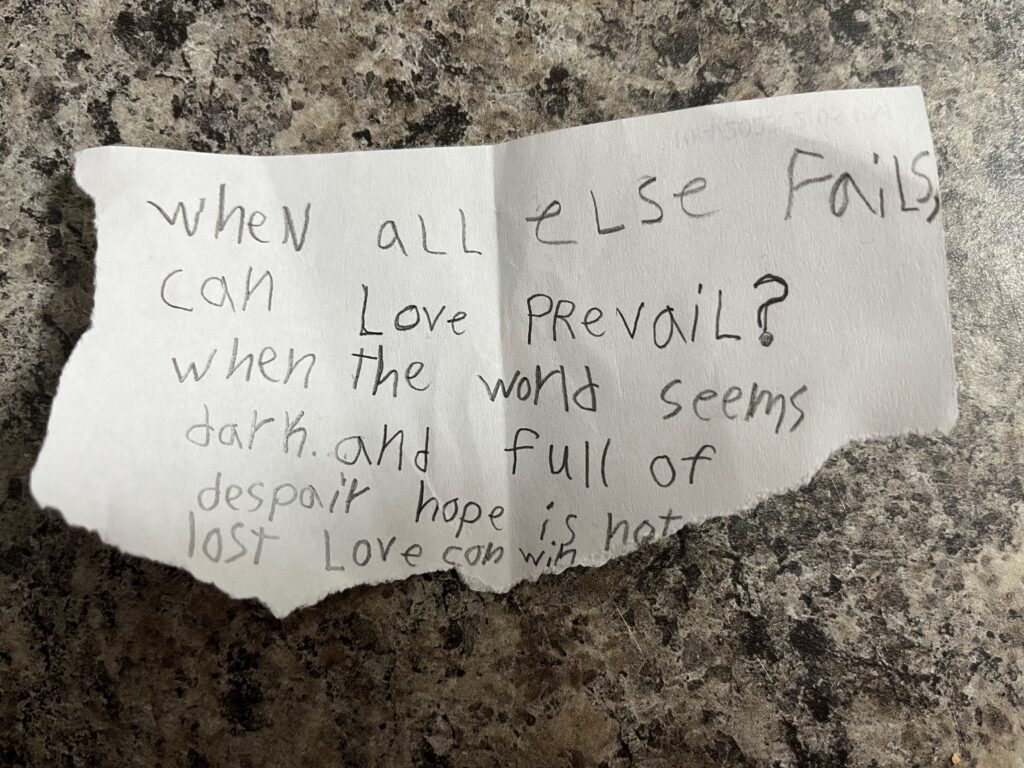 wheN aLL eLSe FaiLS,
can Love PRevaiL?
when the world seems
dark. and full of
despair hope is not
lost Love can win